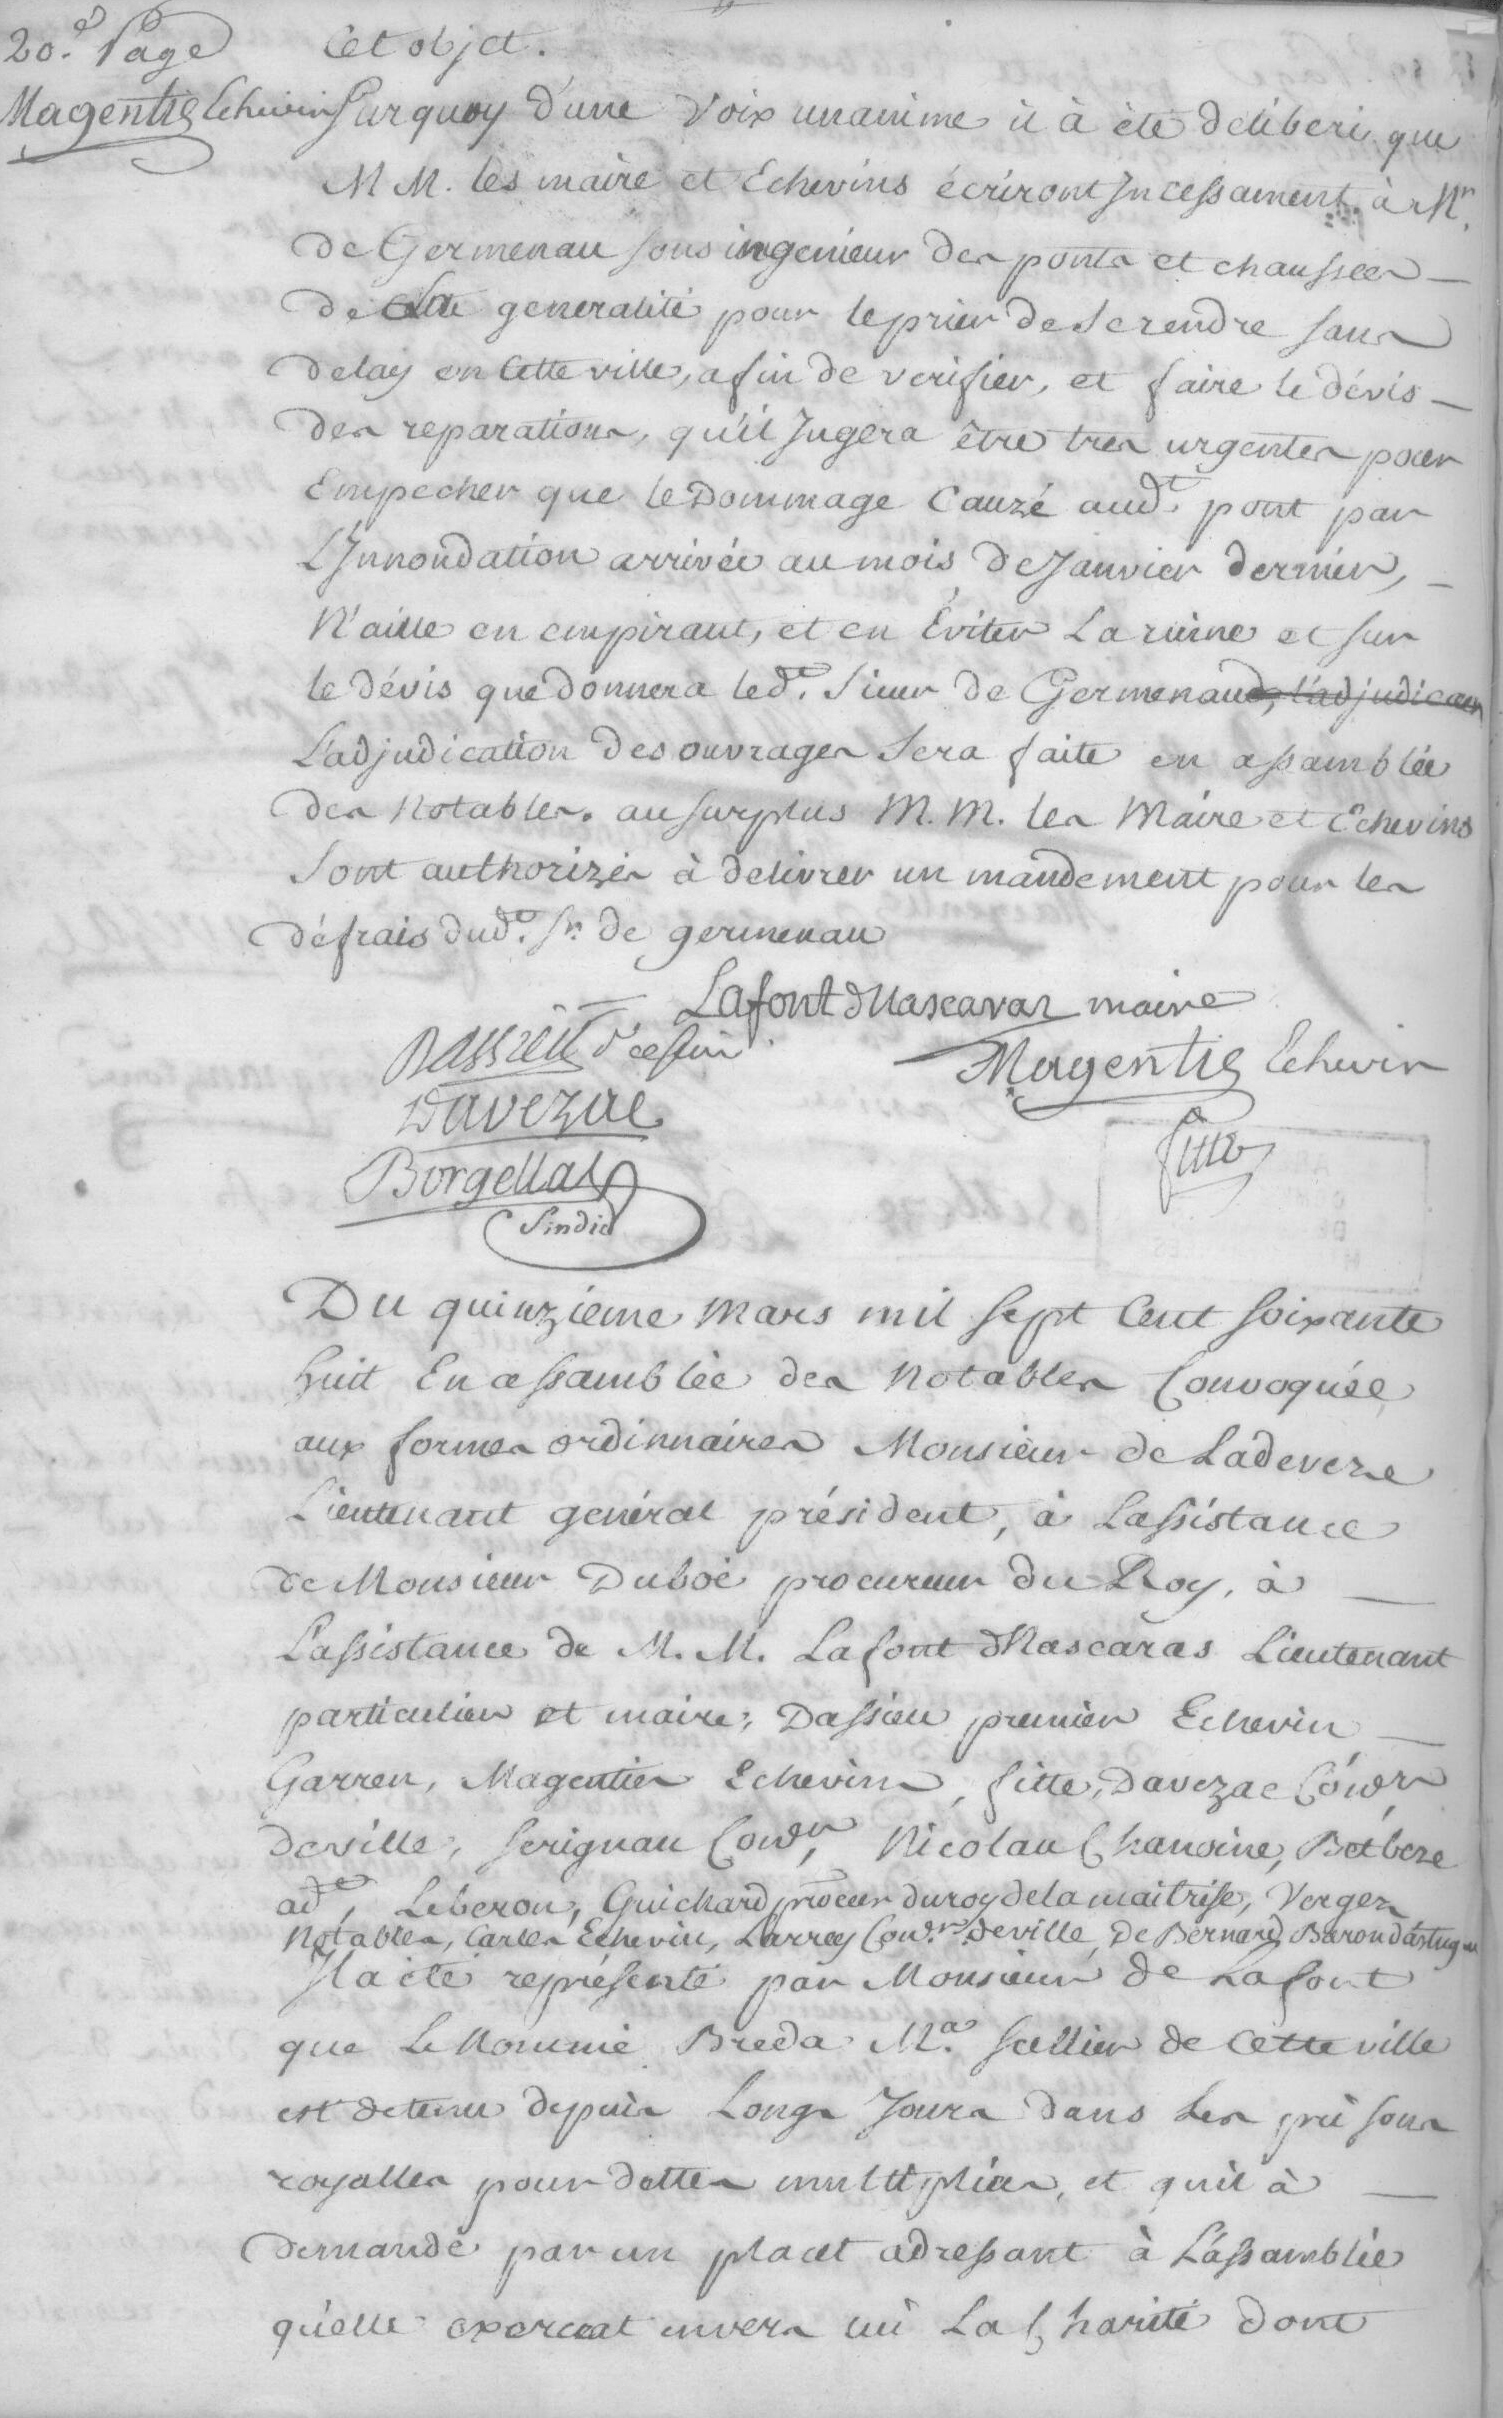 20.e Page
Magentie Echevin
Cet objet.
Sur quoy d'une Voix unanime il à été déliberé que
M M. les maire et Echevins écriront Incessament à Mr.
de Germenau sous ingenieur des ponts et chaussées
de generalité pour le prier de Se rendre sans
delay en Cette ville, afin de verifier, et faire le dévis
des reparations, qu'il Jugera être tres urgentes pour
Empecher que le Dommage Cauzé aud.t pont par
L'Innondation arrivée au mois de Janvier dernier,
N'aille en empirant, et en Eviter La ruine et sur
le dévis que donnera led.t Sieur de Germenaud, l'adjudicaon
L'adjudication des ouvrages Sera faite en assamblée
des Notables. au surplus M. M. les Maire et Echevins
Sont authorizés à delivrer un mandement pour les
défrais dud.t Sr. de germenau
Lafont d Mascaras maire
Magentie Echevin
Davezac
fitte
Borgella
Sindic
Du quinzieme Mars mil Sept Cent soixante
huit En assamblée des Notables Convoquée
aux formes ordinnaires Monsieur de Ladeveze
Lieutenant général président, à Lassistance
de Monsieur Duboé procureur du Roy, à
L'assistance de M. M. Lafont d Mascaras Lieutenant
particulier et maire, Dassieu premier Echevin
Garren, Magentie Echevins, fitte, Davezac Conrs
de ville, Serignau Conr, Nicolau Chanoine, Betbeze
adt, Leberon, Guichard proceur du roy de la maitrise, Verges
Notables, Carles Echevin, Larrey Conr. de ville, De Bernard Baron d'astugue
Il a été représenté par Monsieur de Lafont
que Le Nommé Breda Me. Sellier de Cette ville
est detenu depuis Longs Jours dans Les prisons
royalles pour dettes multipliées, et quil à
demandé par un placet adressant à L'assamblée
qu'elle exerceat envers lui La Charité dont